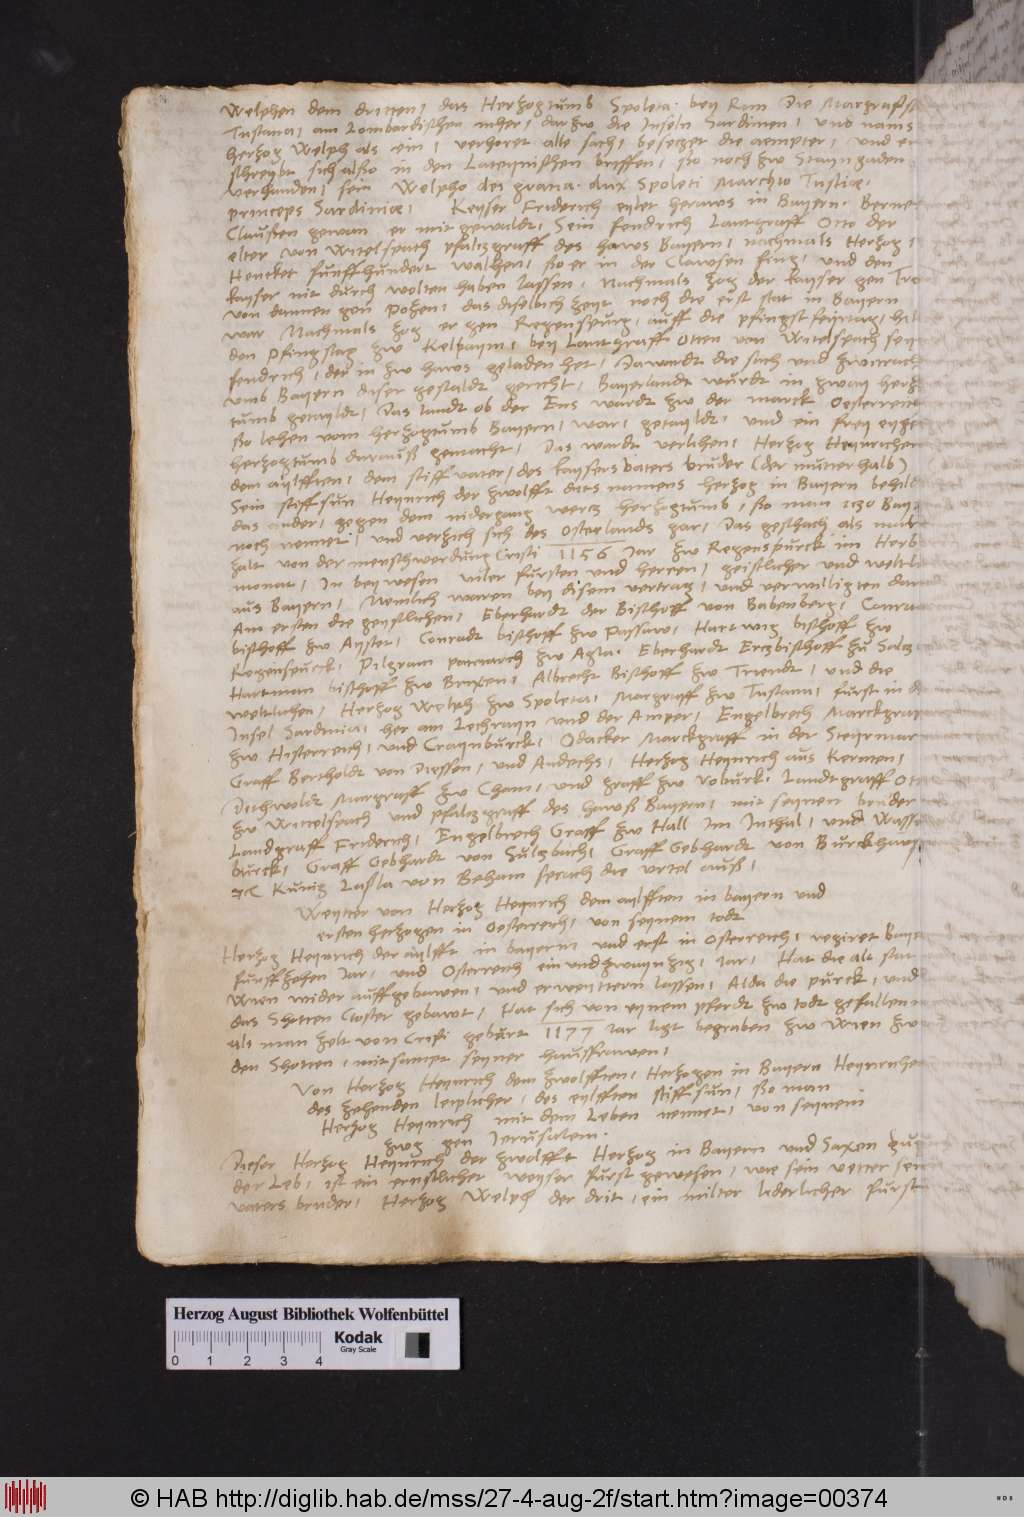 Welphen dem dritten, das Hertzogtumb Spoleta. bey Rom Die Margrafs
Tustana, am Lombardischen mher, darzw die Inseln Sardinen, und nams
hertzog Welph als ein, verhoret alle sach, besetzet die aempter, und
schreybt sich also in den Lateynischen brieffen, so noch zw Stayngaden
verhanden, sein Welpho dei gratia. dux Spoleti Marchio Tustiae,
princeps Sardiniae, Keyser Friderich eylet heraws in Bayern. Berner
Claussen gewan er mit gewaldt, Sein fendrich Lantgraff Otto der
elter von Witelspach pfaltzgraff des haws Bayern, nachmals Hertzog,
Hencket funffhundert walhen, so er in der Clawsen fing, und den
kayser nit durch wolten haben lassen, Nachmals zog der kayser gen Tr
von dannen gen Potzen, das diselbich zeyt noch die erst stat in Bayern
war Nachmals zog er gen Regenspurg, auff die pfingst feyrtag, hil
den Pfingstag zw Kelhaym, bey Lantgraff Otten von Witelspach sey
fendrich, der in zw haws geladen het, Da wardt die sach und zwitrach
umb Bayern diser gestaldt gericht, Bayerlandt wurdt in zway hertz
tumb getayldt, Das landt ob der Ens wardt zw der marck Oesterreich
so lehen vom hertzogtumb Bayern, war, getayldt, und ein frey eyge
hertzogtumb darauß gemacht, Das wardt verlihen, Hertzog Heynrichen
dem aylfften, dem stiffvater, des kayssers vaters bruder (der mutterhalb)
Sein stiffsun Heynrich der zwolfft dits namens hertzog in Bayern behild
das ander, gegen dem nidergang wertz hertzogtumb, so man itzo Bay
noch nennet, und vertzich sich des Osterlands gar, Das geschach als man
zalt von der menschwerdung Cristi 1156 Jar zw Regenspurck im Herb
monat, In beywesen viler fursten und herren, geistlicher und weltli
aus Bayern, Nemlich waren bey disem vertrag, und verwilligten dar
Am ersten die geystlichen, Eberhardt der Bischoff von Babenberg, Conrad
bischoff zw Aystet, Conradt bischoff zw Passaw, Hartwig bischoff zw
Regenspurck, Pilgram patriarch zw Agla. Eberhardt Ertzbischoff zu Saltz
Hartman bischoff zw Brixen, Albrecht Bischoff zw Triendt, und die
weltlichen, Hertzog Welph zw Spoleta, Margraff zw Tustana, furst in d
Insel Sardinia, her am Lechrayn und der Amper, Engelbrech Marckgraf
zw Histerreich, und Craynburck, Odacker Marckgraff in der Steyrmar
Graff Bertholdt von Diessen, und Andechs, Hertzog Heynrich aus Kernten,
Dithwoldt Margraff zw Cham, und graff zw Voburk, Landtgraff Ot
zw Wittelspach und pfaltzgraff des hawß Bayern, mit seynen bruder
Landgraff Friderich, Engelbrech Graff zw Hall im Inthal, und Wasse
burck, Graff Gebhardt von Sultzbach, Graff Gebhardt von Burckhaus
Kunig Lasla von Beham sprach die urtel auß,
Weytter von Hertzog Heynrich dem aylfften in bayern und
ersten hertzogen in Oesterreich, von seynem todt
Hertzog Heynrich der aylfft in bayern und erst in Osterreich, regiret baye
funffzehen Jar, und Osterreich ein und zwayntzig, Jar, Hat die alt stat
Wien wider auffgebawen, und erweyttern lassen, Alda die purck, und
das Shotten Closter gebawt, Hat sich von eynem pferdt zw todt gefallen
als man zelt von Cristi geburt 1177 Jar ligt begraben zw Wien zw
den Shotten, mitsampt seyner haussfrawen,
Von Hertzog Heynrich dem zwolfften, Hertzogen in Bayern Heynriche
des zehenden leyplicher, des eylfften stiffsun, so man
Hertzog Heynrich mit dem Leben nennet, von seynem
zwg gen Jerusalem.
Dieser Hertzog Heynrich der zwolfft Hertzog in Bayern und Saxen zu
der Leb, ist ein ernstlicher weyser furst gewesen, wie sein vetter sein
vaters bruder, Hertzog Welph der drit, ein milter liderlicher furst
Herzog August Bibliothek Wolfenbüttel
Kodak
Gray Scale
0 1 2 3 4
© HAB http://diglib.hab.de/mss/27-4-aug-2f/start.htm?image=00374
HAB